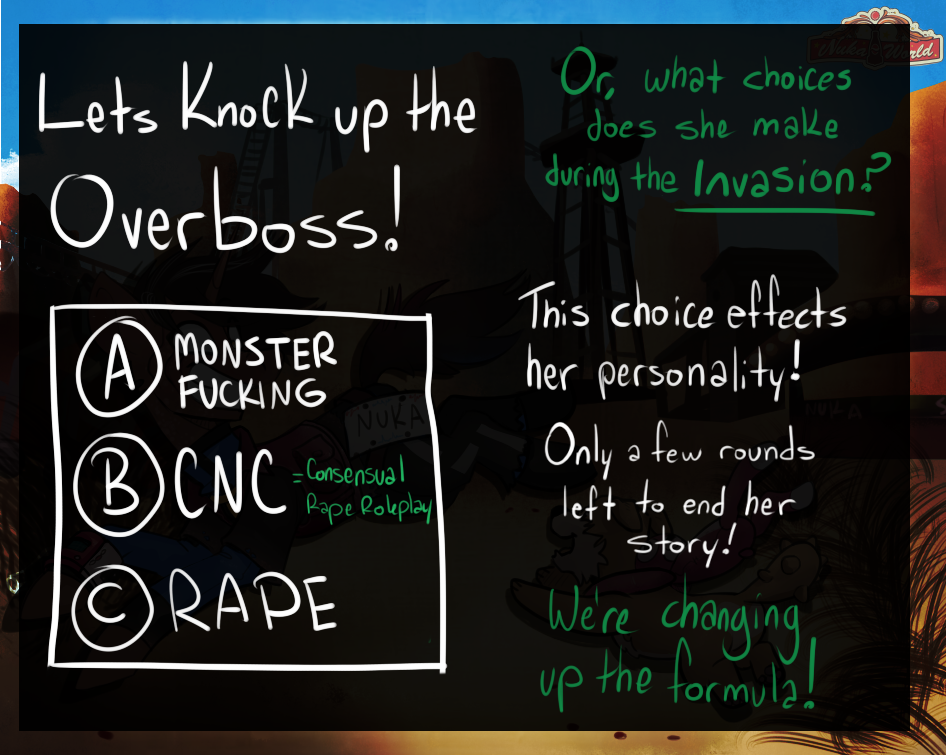 Lets Knock up the
Overboss!
A MONSTER
FUCKING
B CNC =Consensual
Rape Roleplay
C RAPE
Or, what choices
does she make
during the Invasion?
This choice effects
her personality!
Only a few rounds
left to end her
story!
We're changing
up the formula!
Nuka World
NUKA
NUKA